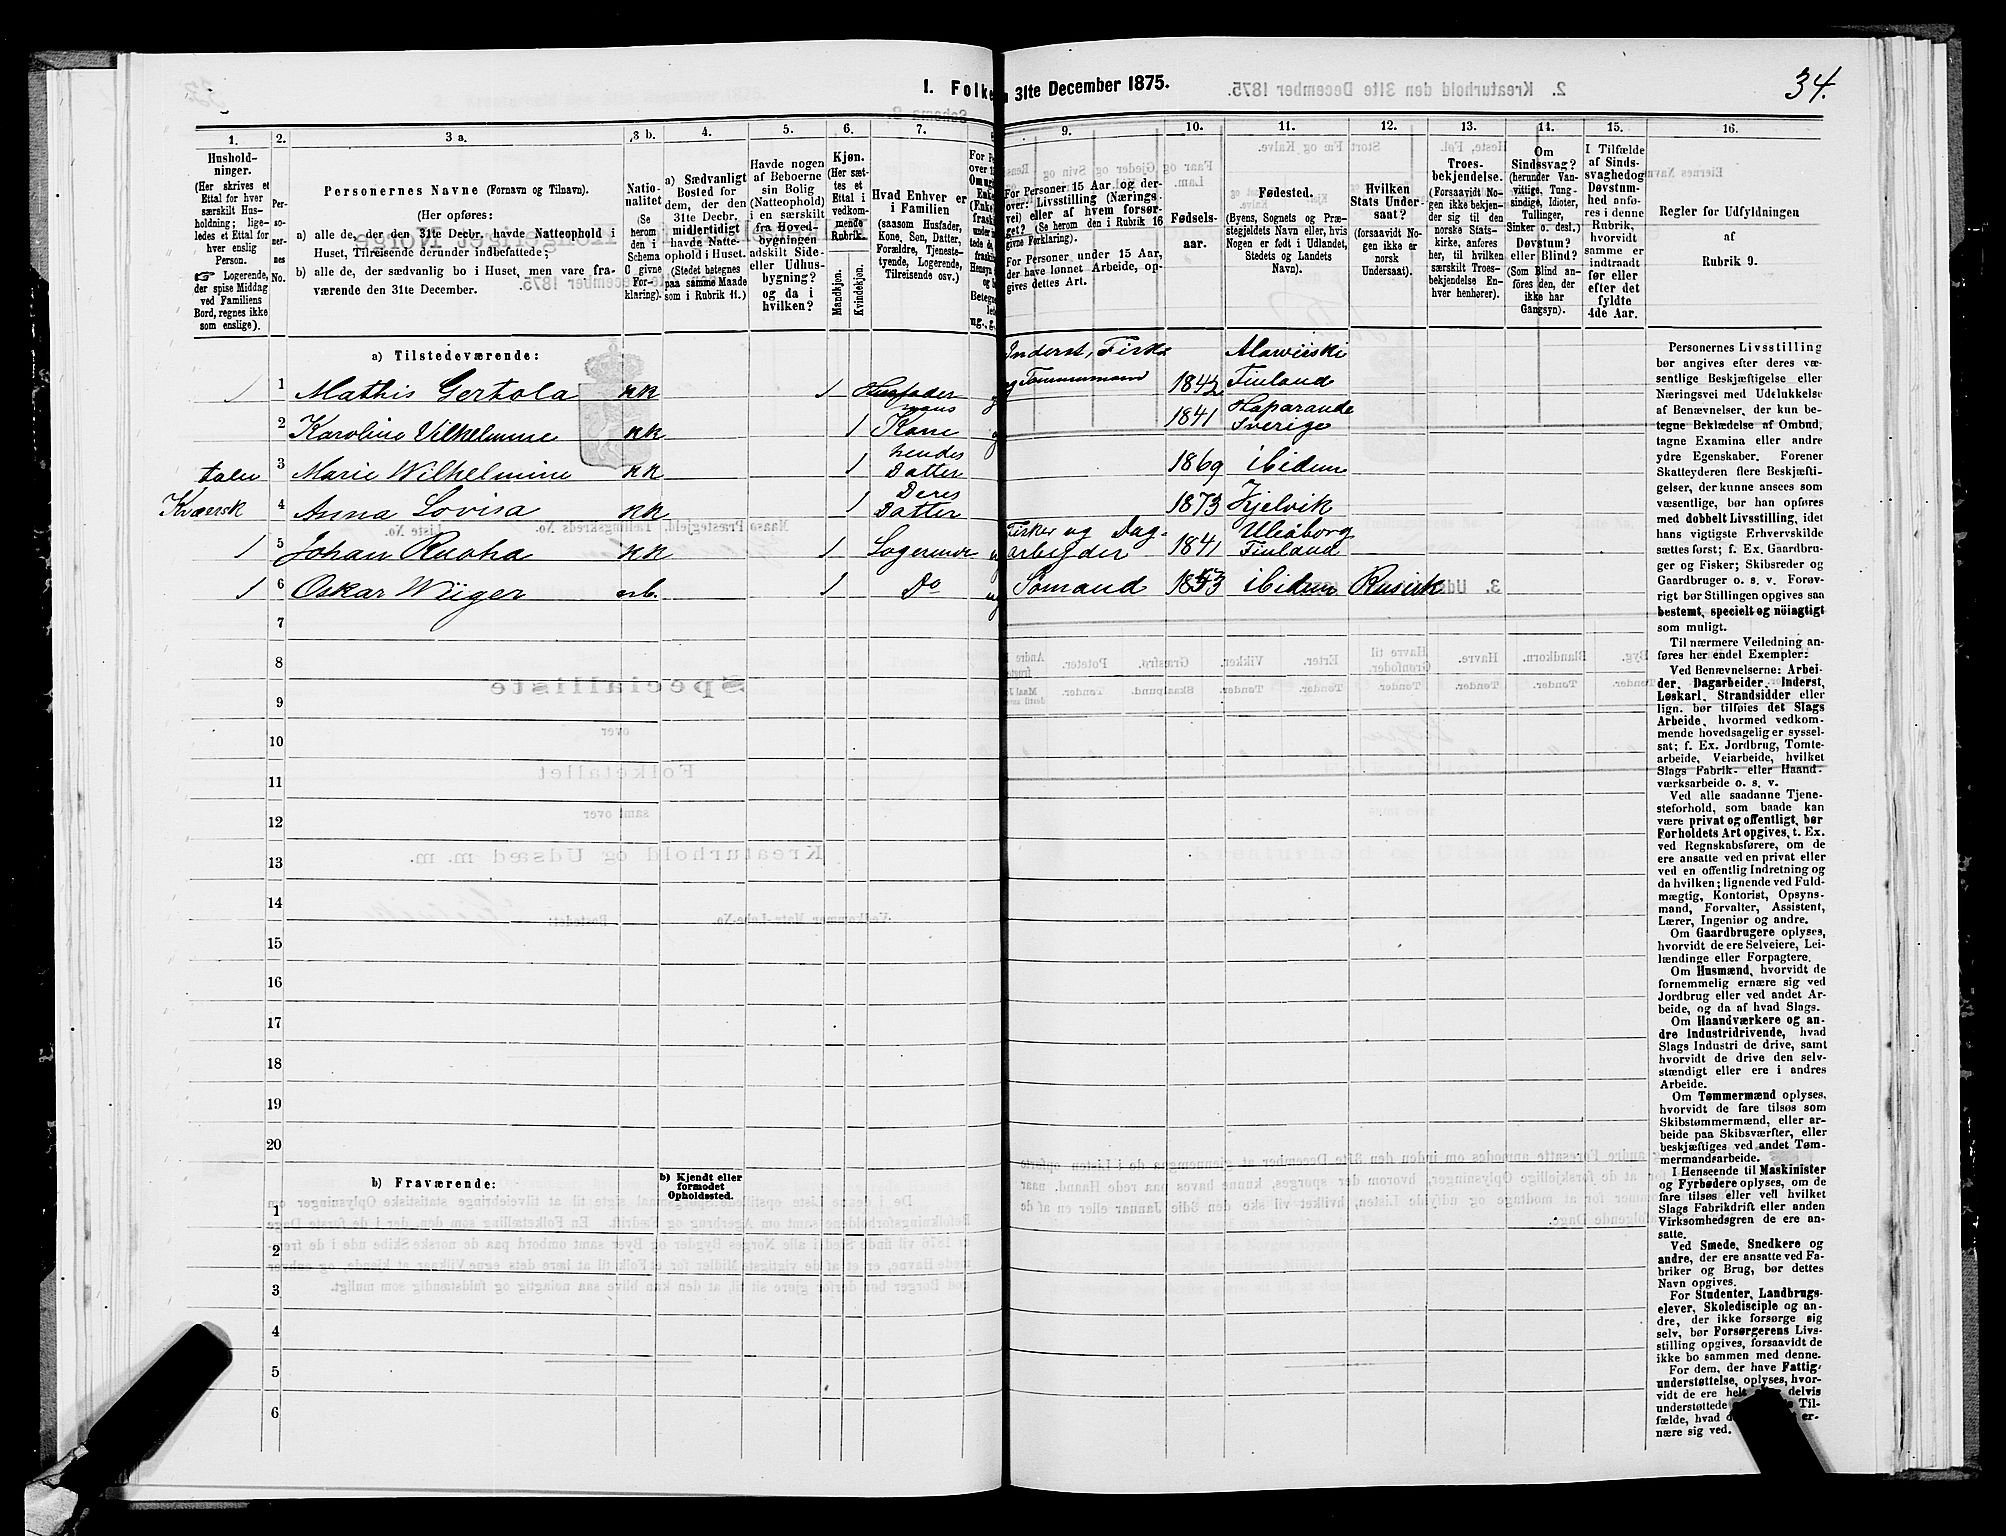 1. Folke
31te December 1875.
34.
1. 2. 3 a. 3 b. 4. 5. 6. 7. 8
9. 10. 11. 12. 13. 14. 15. 16.
Hushold-
ninger.
(Her skrives et
Ettal for hver
særskilt Hus-
holdning; lige-
ledes et Ettal
for hver
enslig
Person.
☞ Logerende,
der spise Middag
ved Familiens
Bord, regnes ikke
som enslige).
Per-
so-
ner-
nes
No.
Personernes Navne (Fornavn og Tilnavn).
(Her opføres:
a) alle de, der den 31te Decbr. havde Natteophold i
Huset, Tilreisende derunder indbefattede;
b) alle de, der sædvanlig bo i Huset, men vare fra-
værende den 31te December.
Natio-
nalitet
(Se
herom
den i
Schema
C givne
For-
klaring).
a) Sædvanligt
Bosted for
dem, der den
31te Decbr.
midlertidigt
havde Natte-
ophold i Huset.
(Stedet betegnes
paa samme Maade
som i Rubrik 11.)
Havde nogen
af Beboerne
sin Bolig
(Natteophold)
i en særskilt
fra Hoved-
bygningen
adskilt Side-
eller Udhus-
bygning?
og da i
hvilken?
Kjøn.
(Her sæt-
tes et
Ettal i
vedkom-
mende
Rubrik.
Mandkjøn.
Kvindekjøn.
Hvad Enhver er
i Familien
(saasom Husfader,
Kone, Søn, Datter,
Forældre, Tjeneste-
tyende, Logerende,
Tilreisende osv.)
For Personer 15 Aar og der-
over: Livsstilling (Nærings-
vei) eller af hvem forsør-
get? (Se herom den i Rubrik 16
givne Forklaring).
For Personer under 15 Aar,
der have lønnet Arbeide, op-
gives dettes Art.
Fødsels-
aar.
Fødested.
(Byens, Sognets og Præ-
stegjeldets Navn eller, hvis
Nogen er født i Udlandet,
Stedets og Landets
Navn).
Hvilken
Stats Under-
saat?
(forsaavidt No-
gen ikke er
norsk
Undersaat).
Troes-
bekjendelse.
(Forsaavidt No-
gen ikke bekjen-
der sig til den
norske Stats-
kirke, anføres
her, til hvilken
særskilt Troes-
bekjendelse En-
hver henhører).
Om
Sindssvag?
(herunder Van-
vittige, Tung-
sindige, Idioter,
Tullinger,
Sinker o. desl.)
Døvstum?
eller Blind?
(Som Blind an-
føres den, der
ikke har
Gangsyn).
I Tilfælde
af Sinds-
svaghed og
Døvstum-
hed anfø-
res i denne
Rubrik,
hvorvidt
samme er
indtraadt
før eller
efter det
fyldte
4de Aar.
Regler for Udfyldningen
af
Rubrik 9.
a) Tilstedeværende:
Inderst, Fisker Alawiiski
1 1 Mathis Gertola kk 1 Husfader g og Tømmermand 1842 Finland
2 Karoline Vilhelmine kk 1 hans Kone g 1841 Haparanda Sverige
talu 3 Marie Wilhelmine kk 1 hendes Datter 1869 ibidem
Kvænsk 4 Anna Lovisa kk 1 Deres Datter 1873 Kjelvik
1 5 Johan Ruoha kk 1 Logerende Fisker og Dagarbejder 1841 Uleåborg Finland
1 6 Oskar Wiiger 1 Do ug Sömand 1853 ibidem Rusisk
7
8
9
10
11
12
13
14
15
16
17
18
19
20
b) Fraværende:
b) Kjendt eller
formodet
Opholdssted.
1
2
3
4
5
6
Personernes Livsstilling
bør angives efter deres væ-
sentlige Beskjæftigelse eller
Næringsvei med Udelukkelse
af Benævnelser, der kun be-
tegne Beklædelse af Ombud,
tagne Examina eller andre
ydre Egenskaber. Forener
Skatteyderen flere Beskjæfti-
gelser, der kunne ansees som
væsentlige, bør han opføres
med dobbelt Livsstilling, idet
hans vigtigste Erhvervskilde
sættes først; f. Ex. Gaardbru-
ger og Fisker; Skibsreder og
Gaardbruger o. s. v. Forøv-
rigt bør Stillingen opgives saa
bestemt, specielt og nöiagtigt
som muligt.
Til nærmere Veiledning an-
føres her endel Exempler:
Ved Benævnelserne: Arbei-
der, Dagarbeider, Inderst,
Løskarl, Strandsidder eller
lign. bør tilføies det Slags
Arbeide, hvormed vedkom-
mende hovedsagelig er syssel-
sat; f. Ex. Jordbrug, Tomte-
arbeide, Veiarbeide, hvilket
Slags Fabrik- eller Haand-
værksarbeide o. s. v.
Ved alle saadanne Tjene-
steforhold, som baade kan
være privat og offentligt, bør
Forholdets Art opgives, t. Ex.
ved Regnskabsførere, om de
ere ansatte ved en privat eller
ved en offentlig Indretning og
da hvilken; lignende ved Fuld-
mægtig, Kontorist, Opsyns-
mand, Forvalter, Assistent,
Lærer, Ingeniør og andre.
Om Gaardbrugere oplyses,
hvorvidt de ere Selveiere, Lei-
lændinge eller Forpagtere.
Om Husmænd, hvorvidt de
fornemmelig ernære sig ved
Jordbrug eller ved andet Ar-
beide, og da af hvad Slags.
Om Haandværkere og an-
dre Industridrivende, hvad
Slags Industri de drive, samt
hvorvidt de drive den selv-
stændigt eller ere i andres
Arbeide.
Om Tømmermænd oplyses,
hvorvidt de fare tilsøs som
Skibstømmermænd, eller ar-
beide paa Skibsværfter, eller
beskjæftiges ved andet Tøm-
mermandsarbeide.
I Henseende til Maskinister
og Fyrbødere oplyses, om de
fare tilsøs eller ved hvilket
Slags Fabrikdrift eller anden
Virksomhedsgren de ere an-
satte.
Ved Smede, Snedkere og
andre, der ere ansatte ved Fa-
briker og Brug, bør dettes
Navn opgives.
For Studenter, Landbrugs-
elever, Skoledisciple og an-
dre, der ikke forsørge sig
selv, bør Forsørgerens Livs-
stilling opgives, forsaavidt de
ikke bo sammen med denne.
For dem, der have Fattig-
understøttelse, oplyses, hvor-
vidt de ere helt delvis
understøttede Til-
fælde, hvad er-
nære sig ved.